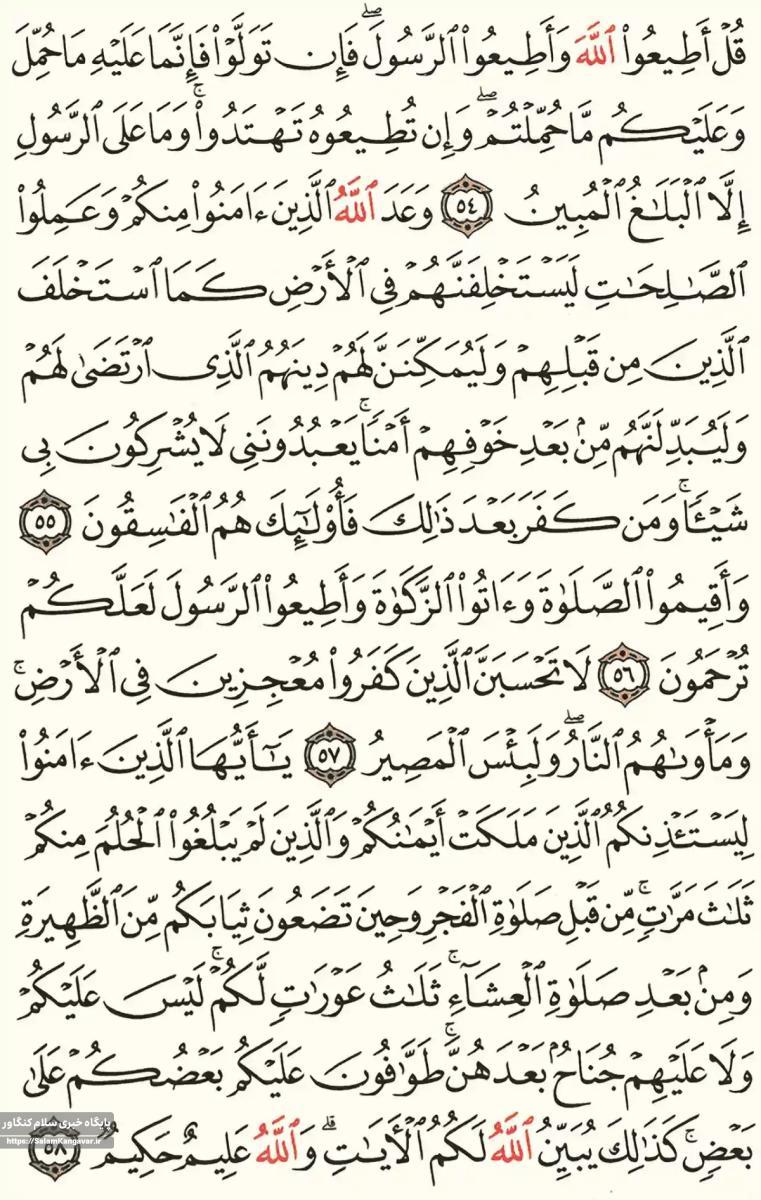 قُلۡ أَطِيعُواْ ٱللَّهَ وَأَطِيعُواْ ٱلرَّسُولَۖ فَإِن تَوَلَّوۡاْ فَإِنَّمَا عَلَيۡهِ مَا حُمِّلَ
وَعَلَيۡكُم مَّا حُمِّلۡتُمۡۖ وَإِن تُطِيعُوهُ تَهۡتَدُواْۚ وَمَا عَلَى ٱلرَّسُولِ
إِلَّا ٱلۡبَلَٰغُ ٱلۡمُبِينُ ٥٤ وَعَدَ ٱللَّهُ ٱلَّذِينَ ءَامَنُواْ مِنكُمۡ وَعَمِلُواْ
ٱلصَّٰلِحَٰتِ لَيَسۡتَخۡلِفَنَّهُمۡ فِي ٱلۡأَرۡضِ كَمَا ٱسۡتَخۡلَفَ
ٱلَّذِينَ مِن قَبۡلِهِمۡ وَلَيُمَكِّنَنَّ لَهُمۡ دِينَهُمُ ٱلَّذِي ٱرۡتَضَىٰ لَهُمۡ
وَلَيُبَدِّلَنَّهُم مِّنۢ بَعۡدِ خَوۡفِهِمۡ أَمۡنٗاۚ يَعۡبُدُونَنِي لَا يُشۡرِكُونَ بِي
شَيۡـٔٗاۚ وَمَن كَفَرَ بَعۡدَ ذَٰلِكَ فَأُوْلَٰٓئِكَ هُمُ ٱلۡفَٰسِقُونَ ٥٥
وَأَقِيمُواْ ٱلصَّلَوٰةَ وَءَاتُواْ ٱلزَّكَوٰةَ وَأَطِيعُواْ ٱلرَّسُولَ لَعَلَّكُمۡ
تُرۡحَمُونَ ٥٦ لَا تَحۡسَبَنَّ ٱلَّذِينَ كَفَرُواْ مُعۡجِزِينَ فِي ٱلۡأَرۡضِۚ
وَمَأۡوَىٰهُمُ ٱلنَّارُۖ وَلَبِئۡسَ ٱلۡمَصِيرُ ٥٧ يَٰٓأَيُّهَا ٱلَّذِينَ ءَامَنُواْ
لِيَسۡتَـٔۡذِنكُمُ ٱلَّذِينَ مَلَكَتۡ أَيۡمَٰنُكُمۡ وَٱلَّذِينَ لَمۡ يَبۡلُغُواْ ٱلۡحُلُمَ مِنكُمۡ
ثَلَٰثَ مَرَّٰتٖۚ مِّن قَبۡلِ صَلَوٰةِ ٱلۡفَجۡرِ وَحِينَ تَضَعُونَ ثِيَابَكُم مِّنَ ٱلظَّهِيرَةِ
وَمِنۢ بَعۡدِ صَلَوٰةِ ٱلۡعِشَآءِۚ ثَلَٰثُ عَوۡرَٰتٖ لَّكُمۡۚ لَيۡسَ عَلَيۡكُمۡ
وَلَا عَلَيۡهِمۡ جُنَاحُۢ بَعۡدَهُنَّۚ طَوَّٰفُونَ عَلَيۡكُم بَعۡضُكُمۡ عَلَىٰ
بَعۡضٖۚ كَذَٰلِكَ يُبَيِّنُ ٱللَّهُ لَكُمُ ٱلۡأٓيَٰتِۗ وَٱللَّهُ عَلِيمٌ حَكِيمٞ ٥٨
پایگاه خبری سلام کنگاور
https://SalamKangavar.ir